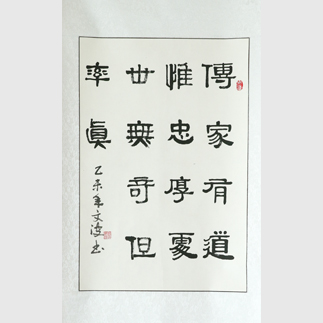 傳家有道
惟忠厚處
世無奇但
率眞
乙未年文书